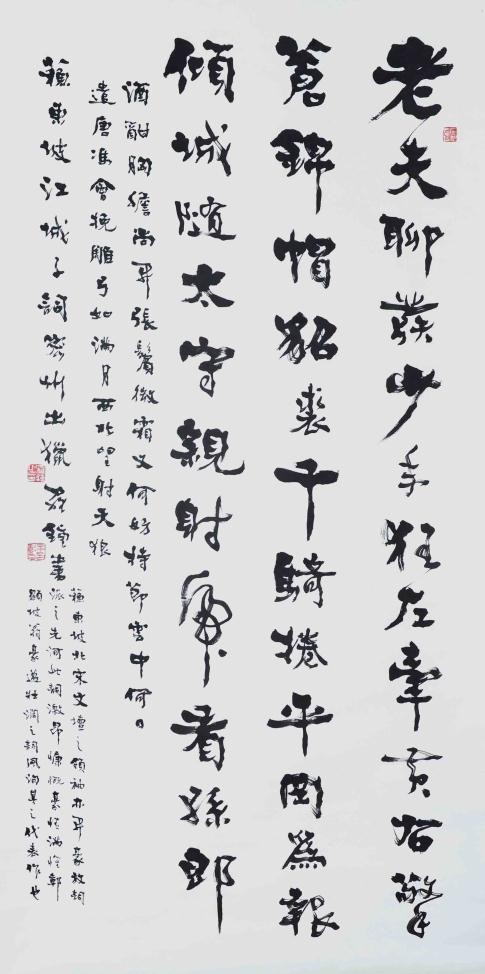 老夫聊發少年狂左牽黃右擎
蒼錦帽貂裘千騎捲平岡爲報
傾城隨太守親射虎看孫郎
酒酣胸膽尚開張鬢微霜又何妨持節雲中何日
遣唐馮會挽雕弓如滿月西北望射天狼
蘇東坡江城子詞密州出獵鐘書
蘇東坡北宋文壇之領袖亦開豪放詞
派之先河此詞激昂慷慨豪情滿懷彰
顯坡翁豪邁壯闊之詞風洵其之代表作也